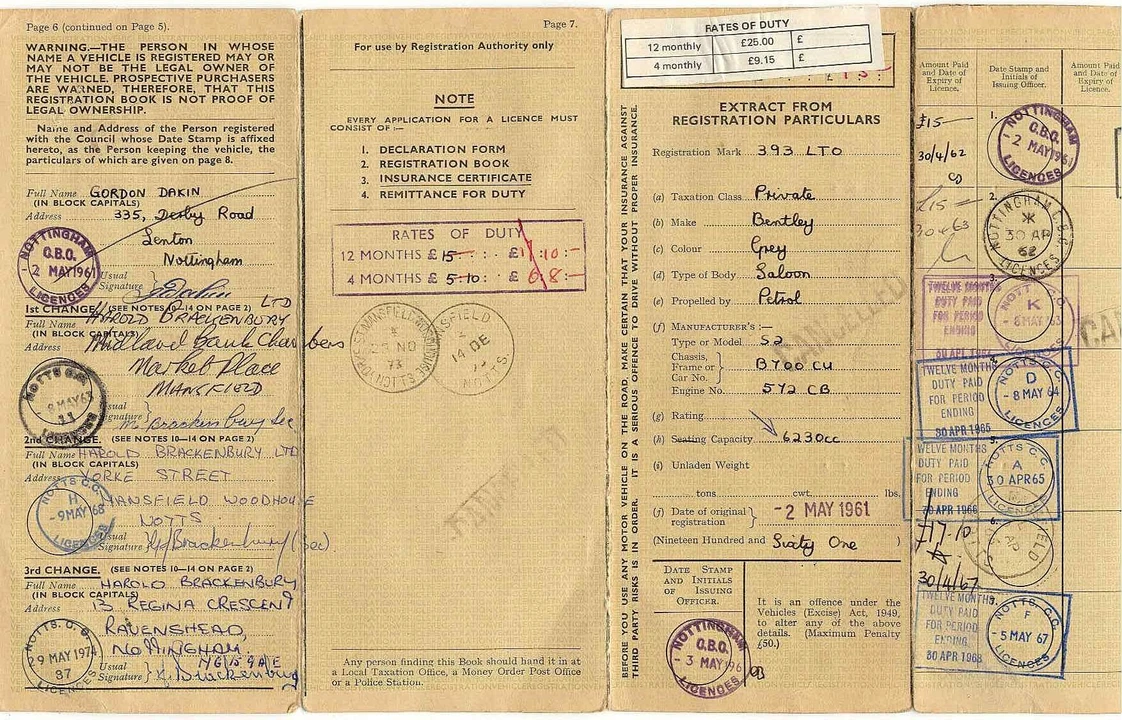 Page 6 (continued on Page 5).
WARNING.—THE PERSON IN WHOSE
NAME A VEHICLE IS REGISTERED MAY OR
MAY NOT BE THE LEGAL OWNER OF
THE VEHICLE. PROSPECTIVE PURCHASERS
ARE WARNED, THEREFORE, THAT THIS
REGISTRATION BOOK IS NOT PROOF OF
LEGAL OWNERSHIP.
Name and Address of the Person registered
with the Council whose Date Stamp is affixed
hereto, as the Person keeping the vehicle, the
particulars of which are given on page 8.
Full Name GORDON DAKIN
(IN BLOCK CAPITALS)
Address 335, Derby Road
Lenton
Nottingham
NOTTINGHAM
C.B.C.
2 MAY 1961
LICENCES
Usual
Signature
G Dakin
1st CHANGE. (SEE NOTES 10-14 ON PAGE 2)
Full Name HAROLD BRACKENBURY LTD
(IN BLOCK CAPITALS)
Address Midland Bank Chambers
Market Place
MANSFIELD
NOTTS C.C.
8 MAY 63
LICENCES
Usual
Signature
M. Brackenbury Sec
2nd CHANGE. (SEE NOTES 10—14 ON PAGE 2)
Full Name HAROLD BRACKENBURY LTD
(IN BLOCK CAPITALS)
Address YORKE STREET
MANSFIELD WOODHOUSE
NOTTS
NOTTS C.C.
H
-9 MAY 68
LICENCES
Usual
Signature Brackenbury (Sec).
3rd CHANGE. (SEE NOTES 10-14 ON PAGE 2)
Full Name HAROLD BRACKENBURY
(IN BLOCK CAPITALS)
Address 13 REGINA CRESCENT
RAVENSHEAD,
NOTTINGHAM.
NG15 9AE
NOTTS. C.C.
29 MAY 1974
87
LICENCES
Usual
Signature Brackenbury
Page 7.
For use by Registration Authority only
NOTE
EVERY APPLICATION FOR A LICENCE MUST
CONSIST OF :—
1. DECLARATION FORM
2. REGISTRATION BOOK
3. INSURANCE CERTIFICATE
4. REMITTANCE FOR DUTY
RATES OF DUTY
12 MONTHS £ 15 : : £17:10:-
4 MONTHS £ 5-10: : £ 6:8:-
MANSFIELD WOODHOUSE
NO
73
NOTTS
MANSFIELD
14 DE
NOTTS.
Any person finding this Book should hand it in at
a Local Taxation Office, a Money Order Post Office
or a Police Station.
BEFORE YOU USE ANY MOTOR VEHICLE ON THE ROAD, MAKE CERTAIN THAT YOUR INSURANCE AGAINST
THIRD PARTY RISKS IS IN ORDER. IT IS A SERIOUS OFFENCE TO DRIVE WITHOUT PROPER INSURANCE.
RATES OF DUTY
12 monthly £25.00 £
4 monthly £9.15 £
EXTRACT FROM
REGISTRATION PARTICULARS
Registration Mark 393 LTO
(a) Taxation Class Private
(b) Make Bentley
(c) Colour Grey
(d) Type of Body Saloon
(e) Propelled by Petrol
(f) MANUFACTURER'S :—
Type or Model S2
Chassis,
Frame or
Car No. B700 CU
Engine No. 572 CB
(g) Rating
(h) Seating Capacity 6230cc
(i) Unladen Weight
tons cwt. lbs.
(j) Date of original
registration -2 MAY 1961
(Nineteen Hundred and Sixty One )
CANCELLED
DATE STAMP
AND INITIALS
OF ISSUING
OFFICER.
NOTTINGHAM
C.B.C.
- 3 MAY 196
LICENCES
It is an offence under the
Vehicles (Excise) Act, 1949,
to alter any of the above
details. (Maximum Penalty
£50.)
Amount Paid
and Date of
Expiry of
Licence.
Date Stamp and
Initials of
Issuing Officer.
Amount Paid
and Date of
Expiry of
Licence.
£15—
30/4/62
1.
NOTTINGHAM
C.B.C.
- 2 MAY 1961
LICENCES
£15 —
2.
NOTTINGHAM C.B.C.
30 AP
62
LICENCES
TWELVE MONTHS
DUTY PAID
FOR PERIOD
ENDING
30 APL 1964
3.
K
- 8 MAY 63
TWELVE MONTHS
DUTY PAID
FOR PERIOD
ENDING
30 APR 1965
4.
NOTTS C.C.
D
- 8 MAY 64
LICENCES
TWELVE MONTHS
DUTY PAID
FOR PERIOD
ENDING
30 APR 1966
5.
NOTTS C.C.
A
30 APR 65
LICENCES
£17-10
30/4/67
6.
TWELVE MONTHS
DUTY PAID
FOR PERIOD
ENDING
30 APR 1968
NOTTS C.C.
F
-5 MAY 67
LICENCES